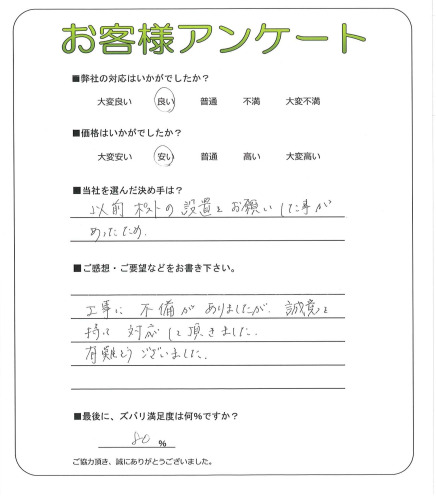 お客様アンケート
■弊社の対応はいかがでしたか？
大変良い 良い 普通 不満 大変不満
■価格はいかがでしたか？
大変安い 安い 普通 高い 大変高い
■当社を選んだ決め手は？
以前 ポストの 設置を お願いした事が
あったため.
■ご感想・ご要望などをお書き下さい。
工事に 不備が ありましたが. 誠意を
持って 対応して頂きました.
有難うございました.
■最後に、ズバリ満足度は何％ですか？
80 %
ご協力頂き、誠にありがとうございました。